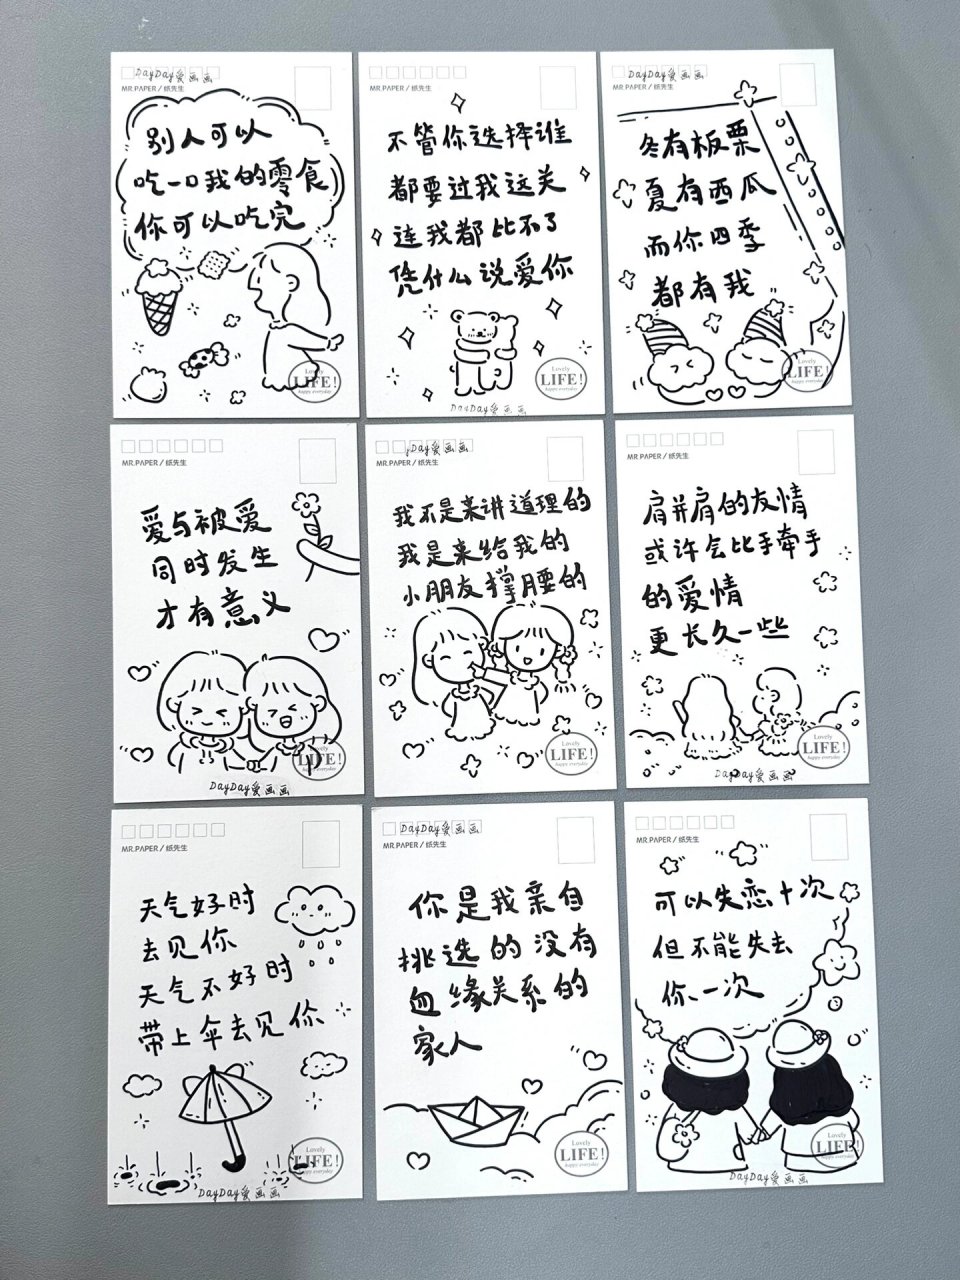 DayDay爱画画
MR.PAPER/纸先生
别人可以
吃一口我的零食
你可以吃完
Lovely
LIFE!
happy everyday
MR.PAPER/纸先生
不管你选择谁
都要过我这关
连我都比不了
凭什么说爱你
Lovely
LIFE!
happy everyday
DayDay爱画画
DayDay爱画画
MR.PAPER/纸先生
冬有板栗
夏有西瓜
而你四季
都有我
Lovely
LIFE!
happy everyday
MR.PAPER/纸先生
爱与被爱
同时发生
才有意义
Lovely
LIFE!
happy everyday
DayDay爱画画
yDay爱画画
MR.PAPER/纸先生
我不是来讲道理的
我是来给我的
小朋友撑腰的
Lovely
LIFE!
happy everyday
MR.PAPER/纸先生
肩并肩的友情
或许会比手牵手
的爱情
更长久一些
Lovely
LIFE!
happy everyday
DayDay爱画画
MR.PAPER/纸先生
天气好时
去见你
天气不好时
带上伞去见你
Lovely
LIFE!
happy everyday
DayDay爱画画
DayDay爱画画
MR.PAPER/纸先生
你是我亲自
挑选的没有
血缘关系的
家人
Lovely
LIFE!
happy everyday
MR.PAPER/纸先生
可以失恋十次
但不能失去
你一次
Lovely
LIFE!
happy everyday
DayDay爱画画